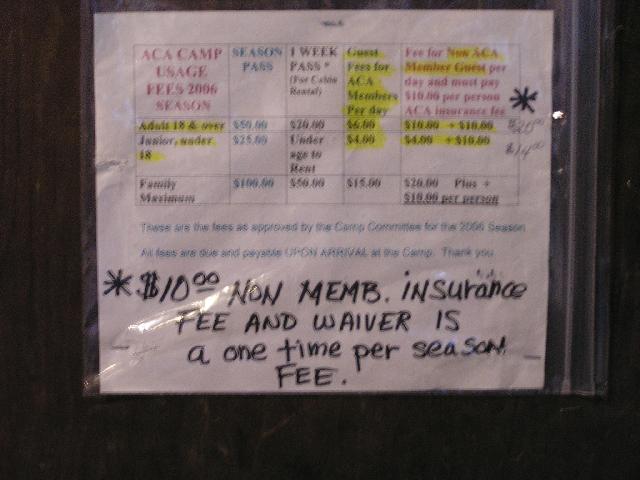 ACA CAMP USAGE FEES 2006 SEASON | SEASON PASS | 1 WEEK PASS * (For Cabin Rental) | Guest Fees for ACA Members Per day | Fee for Non ACA Member Guest per day and must pay $10.00 per person ACA insurance fee *
Adult 18 & over | $50.00 | $20.00 | $6.00 | $10.00 + $10.00 | $20.00
Junior, under 18 | $25.00 | Under age to Rent | $4.00 | $4.00 + $10.00 | $14.00
Family Maximum | $100.00 | $50.00 | $15.00 | $20.00 Plus + $10.00 per person
These are the fees as approved by the Camp Committee for the 2006 Season
All fees are due and payable UPON ARRIVAL at the Camp. Thank you
* $10.00 NON MEMB. INSURANCE
FEE AND WAIVER IS
a one time per season
FEE.